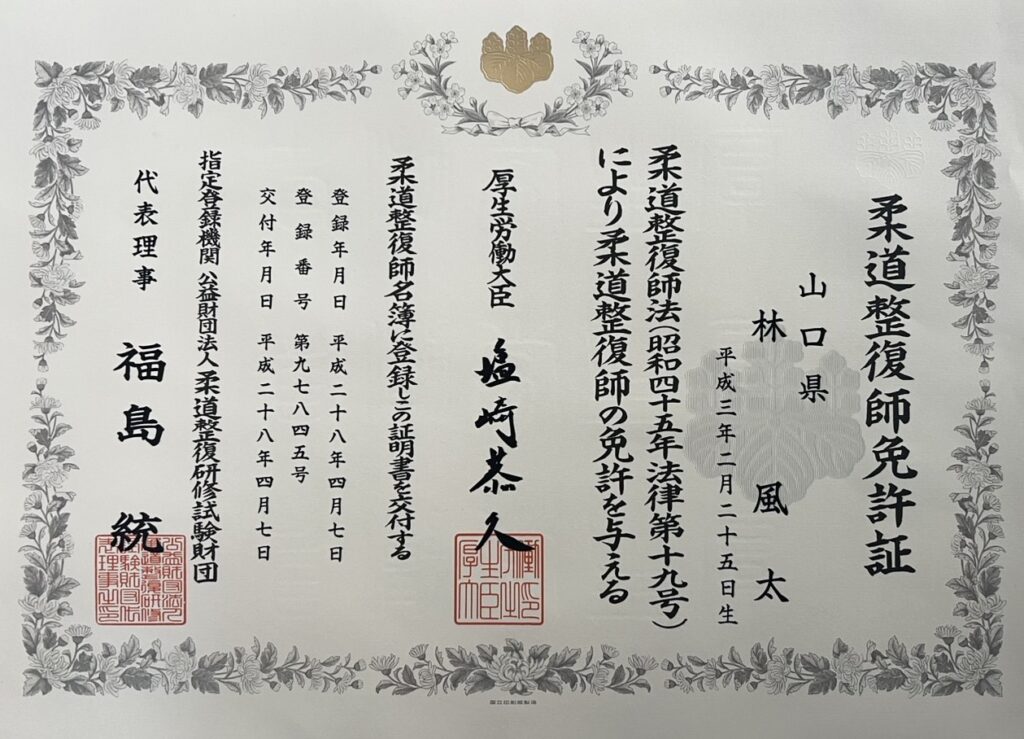 柔道整復師免許証
山口県
林 風太
平成三年二月二十五日生
柔道整復師法(昭和四十五年法律第十九号)
により柔道整復師の免許を与える
厚生労働大臣 塩崎恭久
柔道整復師名簿に登録しこの証明書を交付する
登録年月日 平成二十八年四月七日
登録番号 第九七八四五号
交付年月日 平成二十八年四月七日
指定登録機関 公益財団法人柔道整復研修試験財団
代表理事 福島 統
国立印刷局製造